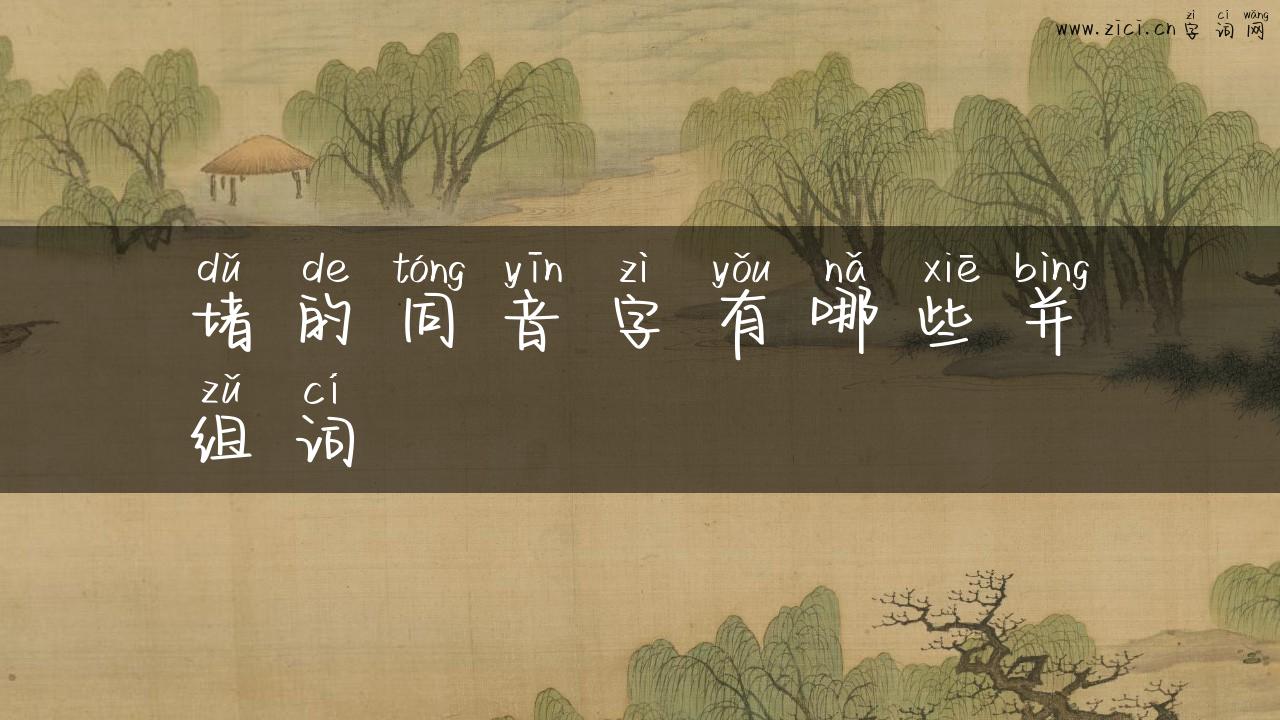 zì cí wǎng
www.zici.cn 字词网
dǔ de tóng yīn zì yǒu nǎ xiē bìng
堵的同音字有哪些并
zǔ cí
组词